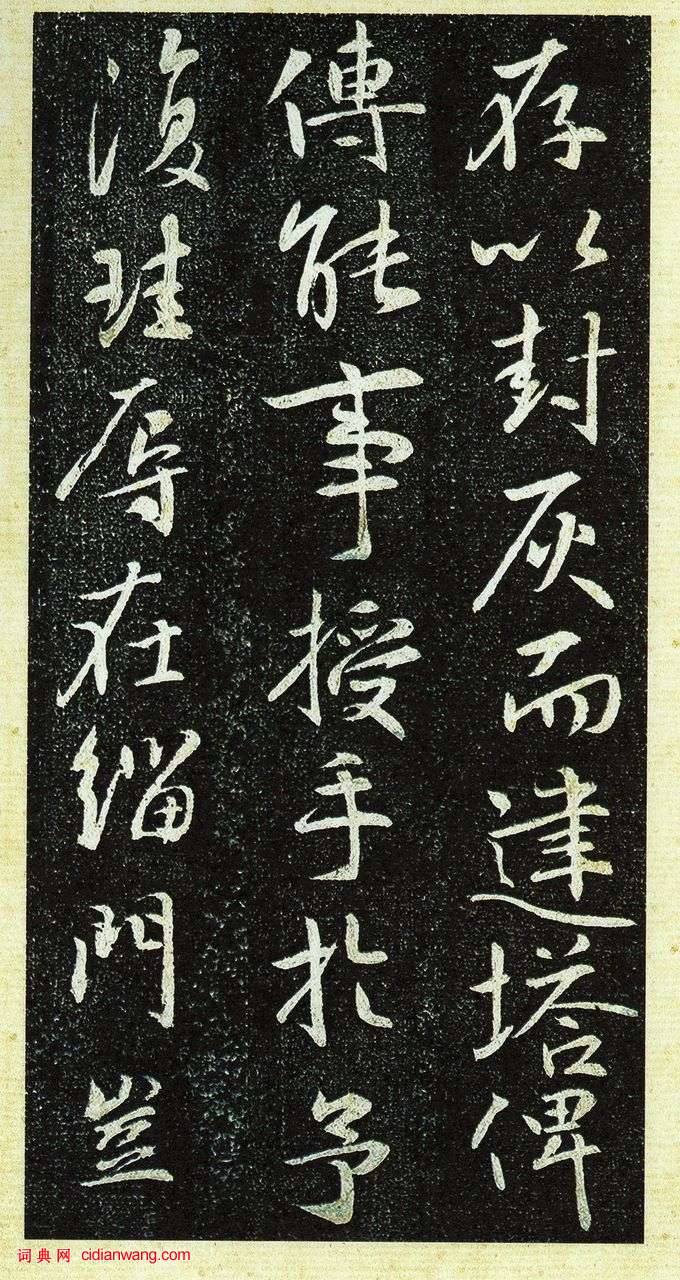 存以封灰而建塔俾
傳能事授手於予
復珪辱在緇門豈
词典网 cidianwang.com